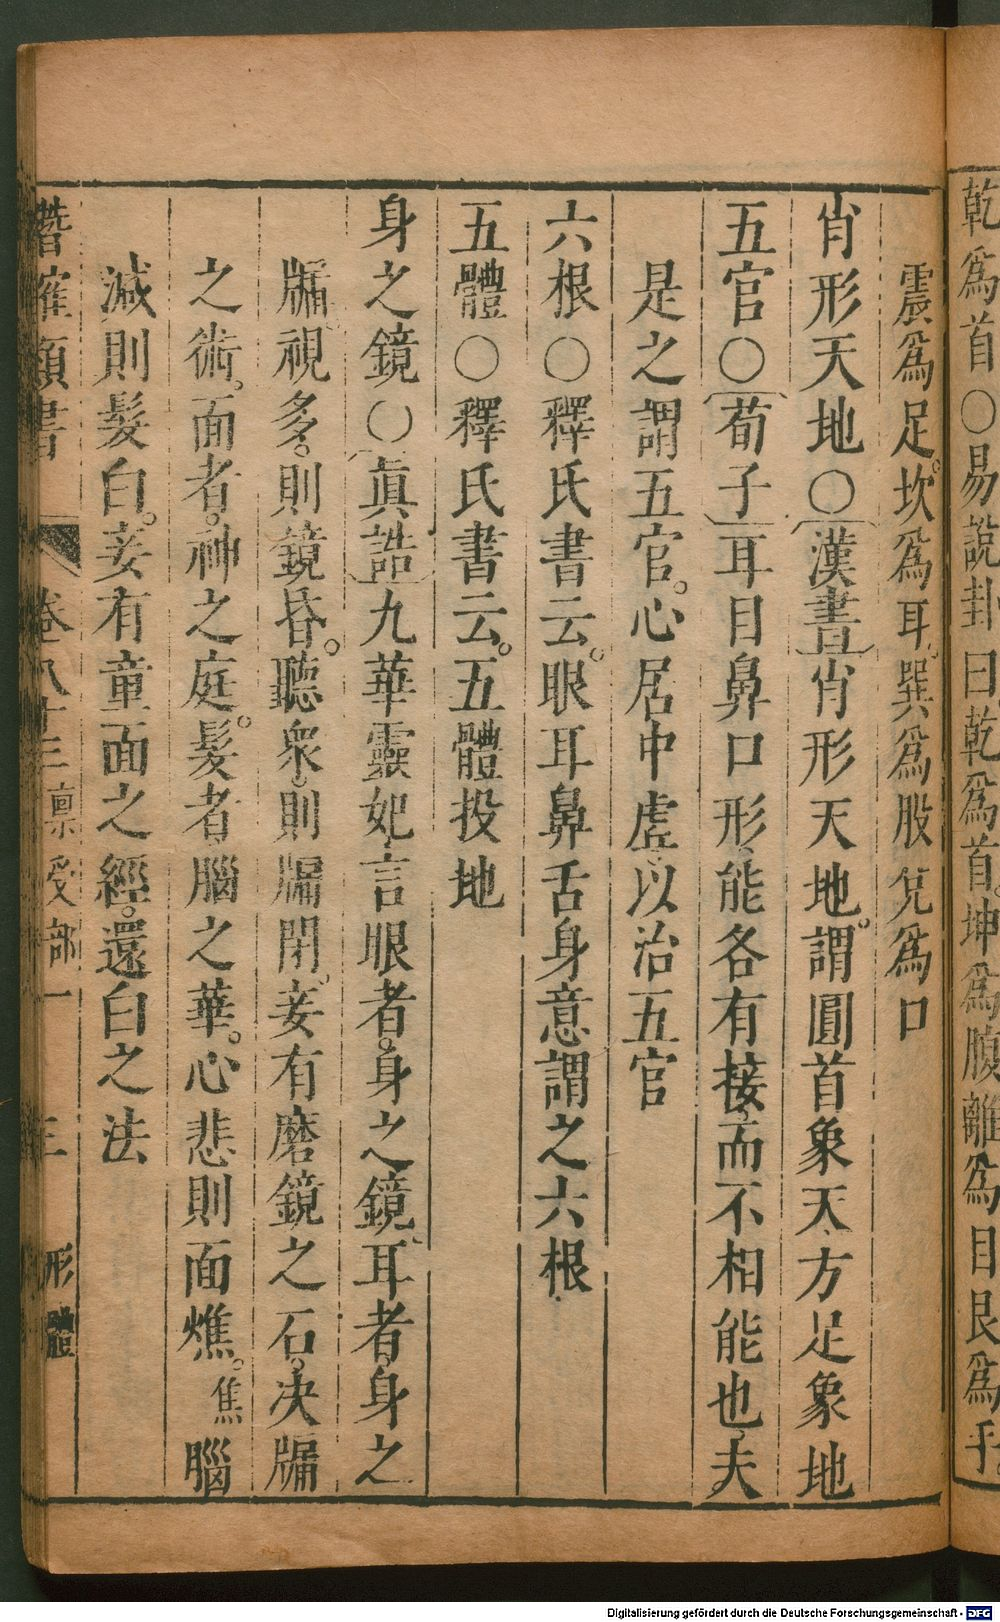 乾爲首○易說卦曰乾爲首坤爲腹離爲目艮爲手
震爲足坎爲耳巽爲股兌爲口
肖形天地○漢書肖形天地謂圓首象天方足象地
五官○荀子耳目鼻口形能各有接而不相能也夫
是之謂五官心居中虛以治五官
六根○釋氏書云眼耳鼻舌身意謂之六根
五體○釋氏書云五體投地
身之鏡○眞誥九華靈妃言眼者身之鏡耳者身之
牖視多則鏡昏聽衆則牖閉妾有磨鏡之石决牖
之術面者神之庭髮者腦之華心悲則面燋焦腦
減則髮白妾有童面之經還白之法
潛確類書 卷八十三稟受部一 三 形體
Digitalisierung gefördert durch die Deutsche Forschungsgemeinschaft - DFG